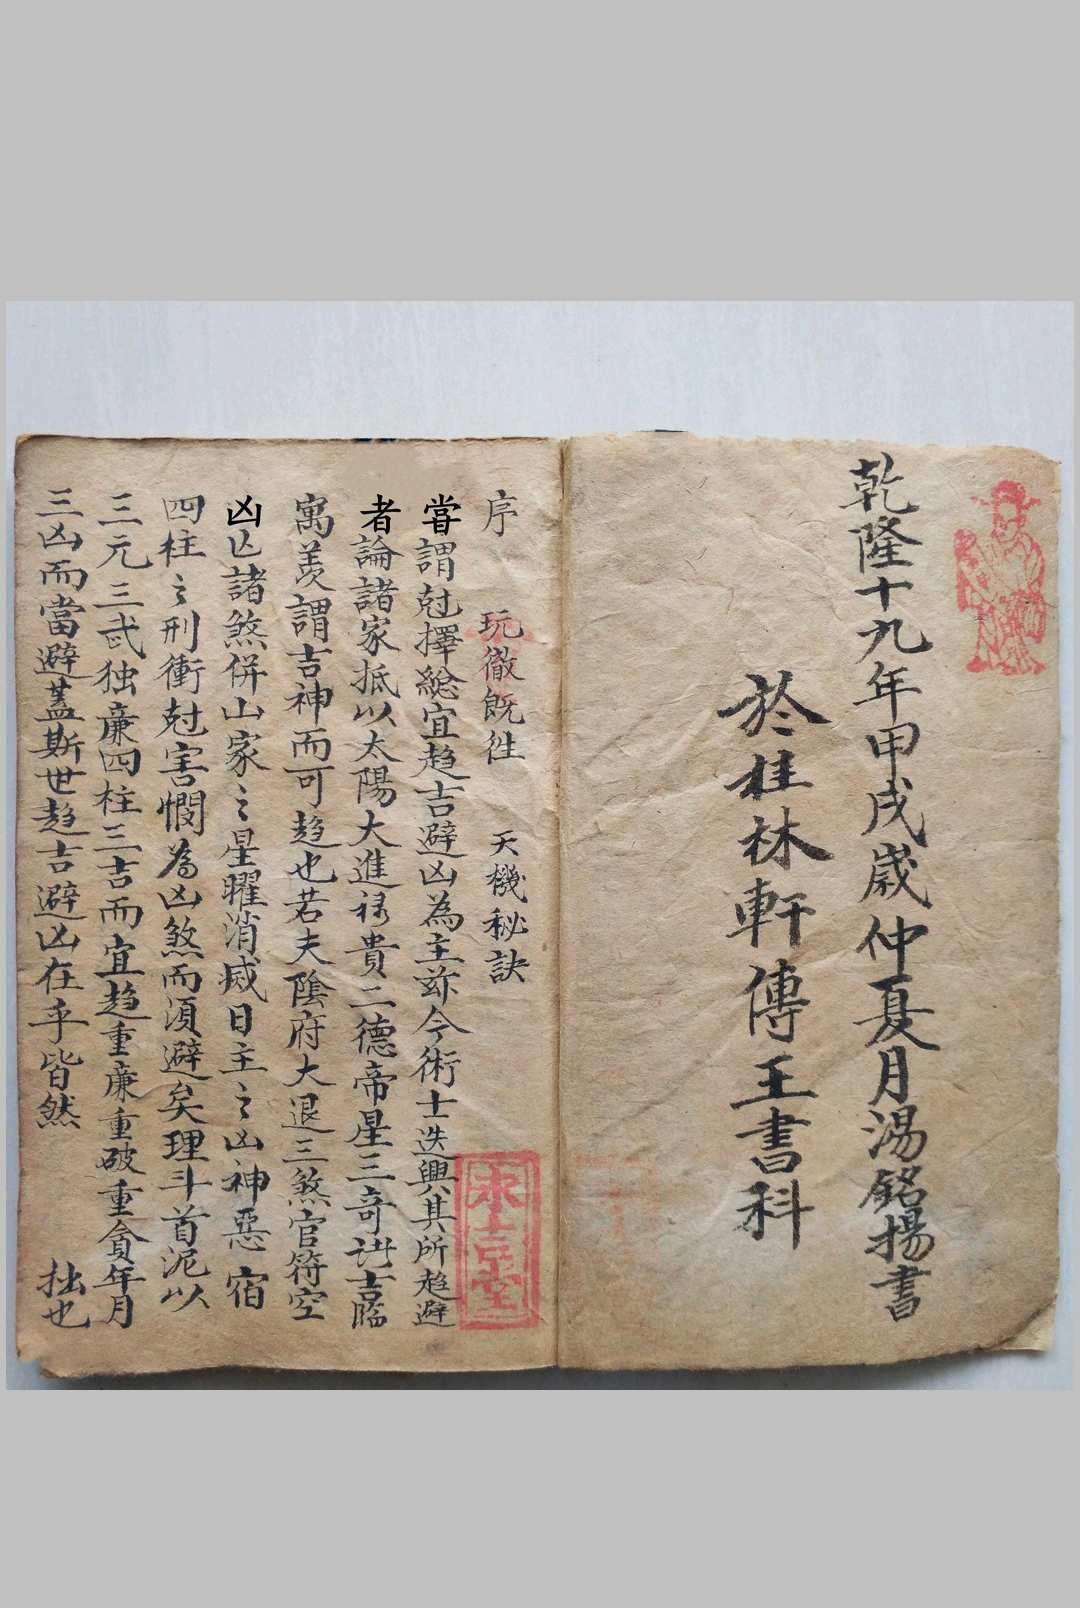 乾隆十九年甲戌歲仲夏月湯銘揚書
於桂林軒傳王書科
序 玩徹既徃 天機秘訣
甞謂尅擇總宜趋吉避凶為主茲今術士迭興其所趋避
者論諸家抵以太陽大進禄貴二德帝星三奇諸吉臨
寓羡謂吉神而可趋也若夫陰府大退三煞官符空
凶亡諸煞併山家之星曜消滅日主之凶神惡宿
四柱之刑衝尅害憫為凶煞而須避矣理斗首泥以
三元三武独廉四柱三吉而宜趋重廉重破重貪年月
三凶而當避蓋斯世趋吉避凶在乎皆然 拙也
永吉堂